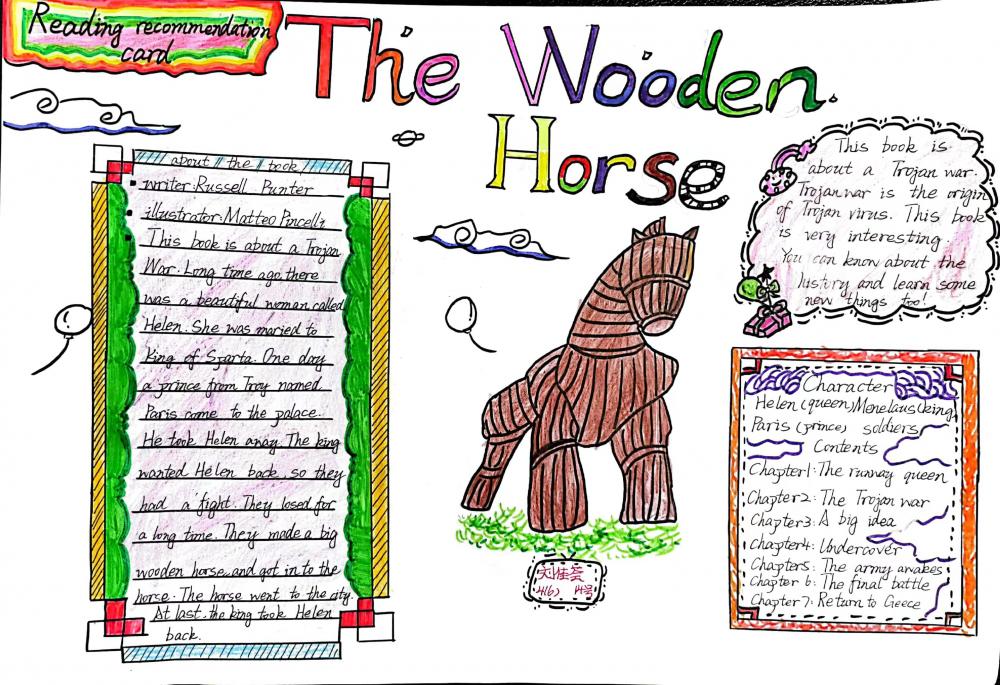 Reading recommendation
card
The Wooden
Horse
about the book
writer: Russell Punter
illustrator: Matteo Pincelli
This book is about a Trojan
War. Long time ago, there
was a beautiful woman called
Helen. She was maried to
king of Sparta. One day
a prince from Troy named
Paris came to the palace.
He took Helen away. The king
wanted Helen back. so they
had a fight. They losed for
a long time. They made a big
wooden horse, and got in to the
horse. The horse went to the city.
At last, the king took Helen
back.
This book is
about a Trojan war.
Trojan war is the origin
of Trojan virus. This book
is very interesting.
You can know about the
history and learn some
new things too!
Character
Helen (queen) Menelaus (king)
Paris (prince) soldiers
Contents
Chapter1: The runway queen
Chapter2: The Trojan war
Chapter3: A big idea
Chapter4: Undercover
Chapter5: The army awakes
Chapter 6: The final battle
Chapter7: Return to Geece
4(6)